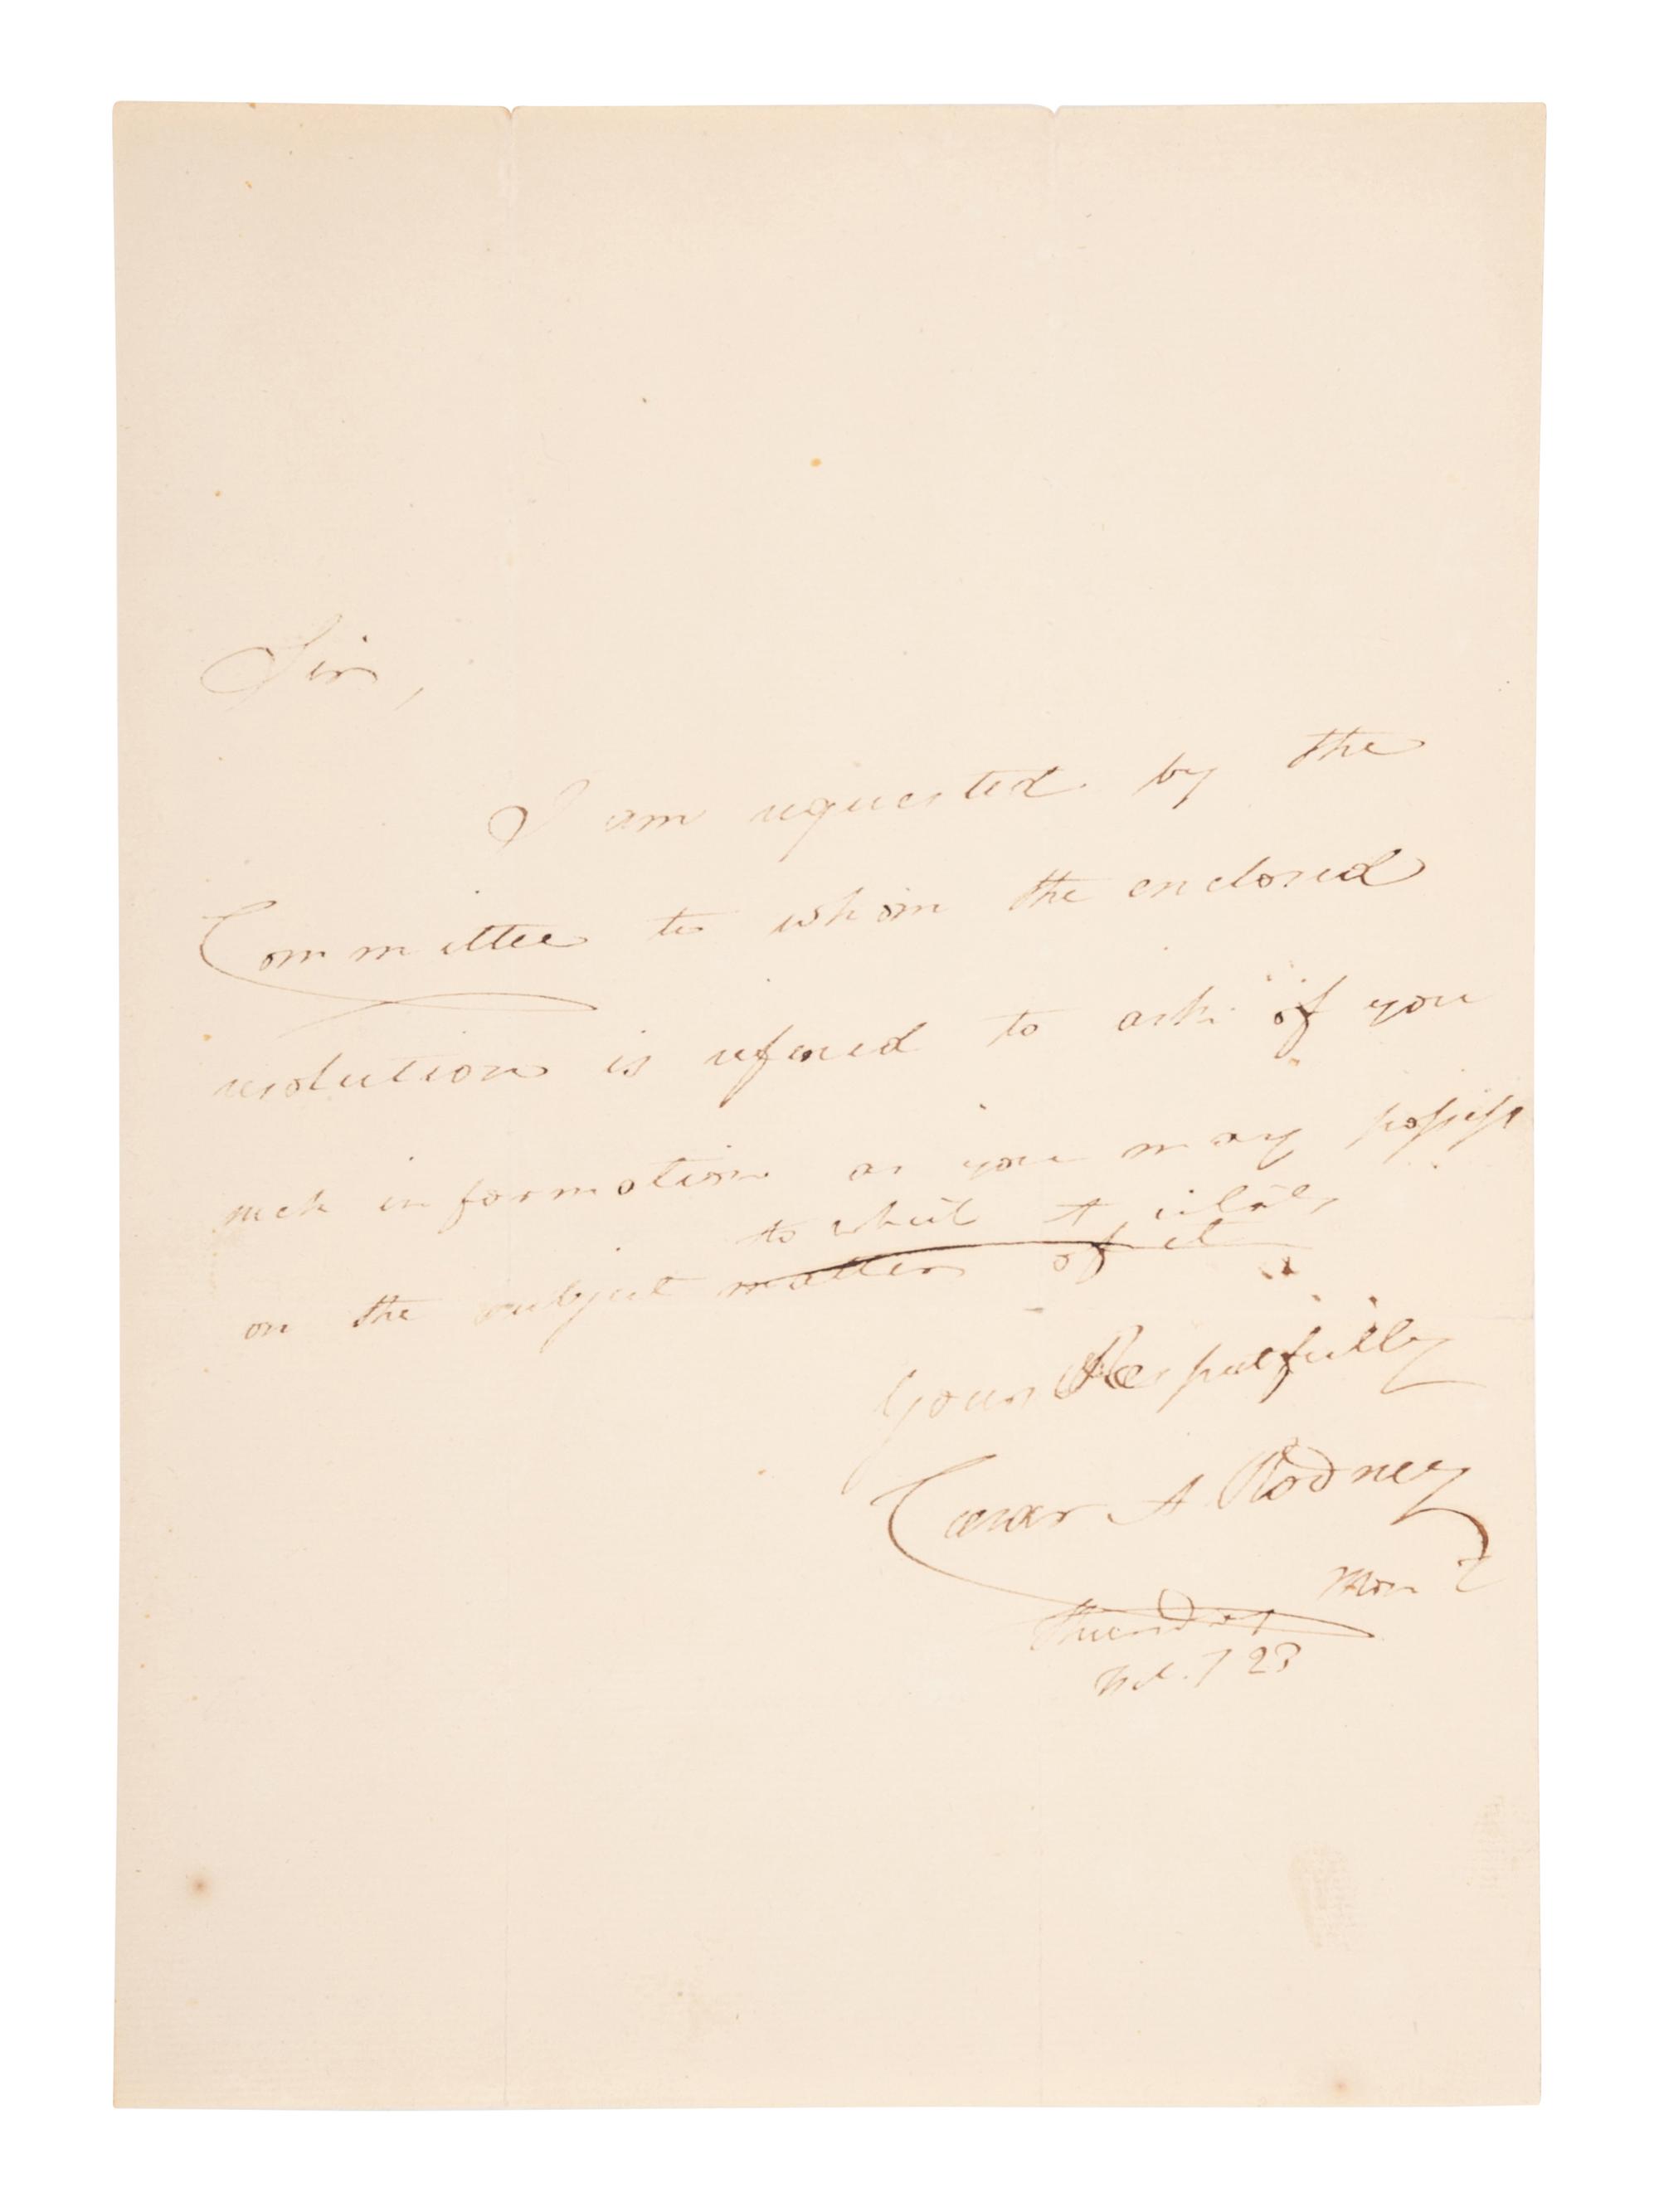 Sir,
I am requested by the
Committee to whom the enclosed
resolution is refered to ask of you
such information as you may possess
to which it relates
on the subject matter of it
Yours Respectfully
Caesar A Rodney
Thursday
23